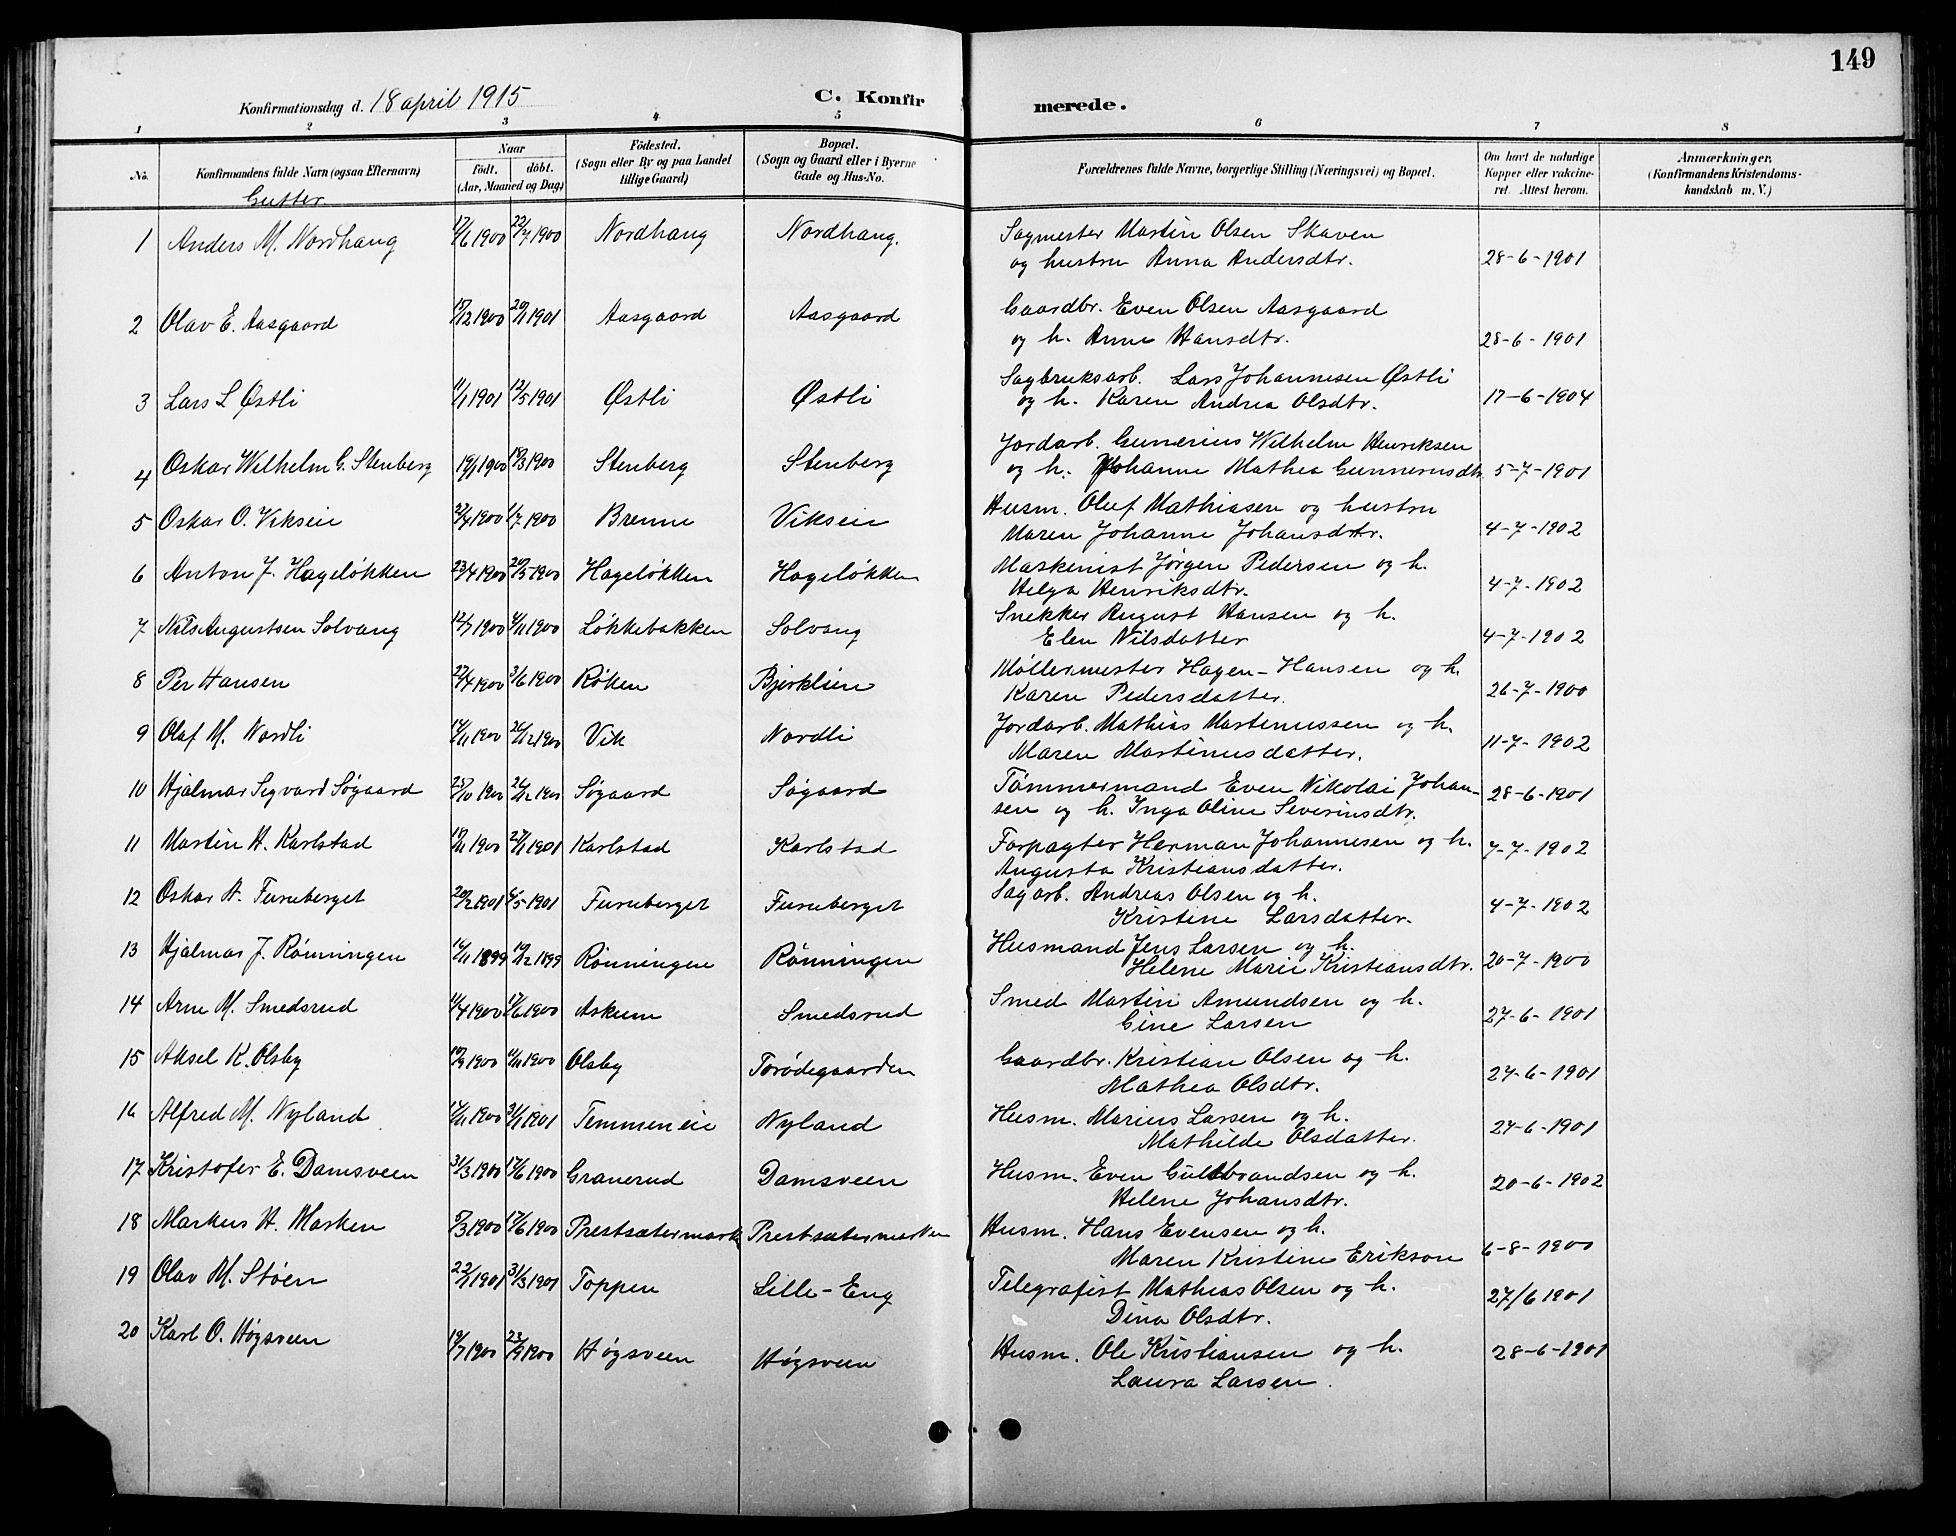 149
Konfirmationsdag d. 18 april 1915 C. Konfirmerede.
1 2 3 4 5 6 7 8
No. Konfirmandens fulde Navn (ogsaa Efternavn) Naar født. døbt. (Aar, Maaned og Dag) Fødested. (Sogn eller By og paa Landet tillige Gaard) Bopæl. (Sogn og Gaard eller i Byerne Gade og Hus-No. Forældrenes fulde Navne, borgerlige Stilling (Næringsvei) og Bopæl. Om havt de naturlige Kopper eller vakcineret. Attest herom. Anmærkninger. (Konfirmandens Kristendomskundskab m. V.)
Gutter.
1 Anders M. Nordhang 17/6 1900 22/7 1900 Nordhang Nordhang. Sagmester Martin Olsen Skaven
og hustru Anna Andersdtr. 28-6-1901
2 Olav E. Aasgaard 15/12 1900 20/1 1901 Aasgaard Aasgaard Gaardbr. Even Olsen Aasgaard
og h. Anne Hansdtr. 28-6-1901
3 Lars L Østli 11/1 1901 12/5 1901 Østli Østli Sagbruksarb. Lars Johannesen Østli
og h. Karen Andrea Olsdtr. 17-6-1904
4 Oskar Wilhelm G. Stenberg 19/1 1900 18/3 1900 Stenberg Stenberg Jordarb. Gunerius Wilhelm Henriksen
og h. Johanne Mathea Gunneriusdtr 5-7-1901
5 Oskar O. Vikseie 2/4 1900 1/7 1900 Brenne Vikseie Husm. Oluf Mathiasen og hustru
Maren Johanne Johansdtr. 4-7-1902
6 Anton J. Hageløkken 23/4 1900 20/5 1900 Hageløkken Hageløkken Maskinist Jørgen Pedersen og h.
Helga Henriksdtr. 4-7-1902
7 Nils Augustsen Solvang 12/7 1900 4/11 1900 Løkkebakken Solvang Snekker August Hansen og h.
Elen Nilsdatter 4-7-1902
8 Per Hansen 22/4 1900 3/6 1900 Røken Bjerklien Møllermester Hagen-Hansen og h.
Karen Pedersdatter. 26-7-1900
9 Olaf M. Nordli 14/11 1900 26/12 1900 Vik Nordli Jordarb. Mathias Martinussen og h.
Maren Martinusdatter. 11-7-1902
10 Hjalmar Sigvard Søgaard 25/10 1900 26/12 1900 Søgaard Søgaard Tømmermand Even Nikolai Johan-
sen og h. Inga Oline Severinsdtr. 28-6-1901
11 Martin H. Karlstad 19/11 1900 27/1 1901 Karlstad Karlstad Forpagter Herman Johannesen og h.
Augusta Kristiansdatter. 7-7-1902
12 Oskar A. Furuberget 20/2 1901 4/5 1901 Furuberget Furuberget Sagarb. Andreas Olsen og h.
Kristine Larsdatter. 4-7-1902
13 Hjalmar J. Rønningen 14/11 1899 19/12 1899 Rønningen Rønningen Husmand Jens Larsen og h.
Helene Marie Kristiansdtr. 20-7-1900
14 Arne M. Smedsrud 11/4 1900 17/6 1900 Askum Smedsrud Smed Martin Amundsen og h.
Gine Larsen 27-6-1901
15 Aksel K. Olsby 19/9 1900 4/11 1900 Olsby Torødegaarden Gaardbr. Kristian Olsen og h.
Mathea Olsdtr. 24-6-1901
16 Alfred M. Nyland 17/11 1900 31/1 1901 Temmeneie Nyland Husm. Marius Larsen og h.
Mathilde Olsdatter. 24-6-1901
17 Kristofer E. Damsveen 31/3 1900 17/6 1900 Granerud Damsveen Husm. Even Gulbrandsen og h.
Helene Johansdtr. 20-6-1902
18 Markus H. Marken 5/3 1900 17/6 1900 Prestsætermark Prestsætermarken Husm. Hans Evensen og h.
Maren Kristine Erikson 6-8-1900
19 Olav M. Støen 22/1 1901 31/3 1901 Toppen Lille-Eng Telegrafist Mathias Olsen og h.
Dina Olsdtr. 27/6 1901
20 Karl O. Høgsveen 19/7 1900 23/9 1900 Høgsveen Høgsveen Husm. Ole Kristiansen og h.
Laura Larsen. 28-6-1901